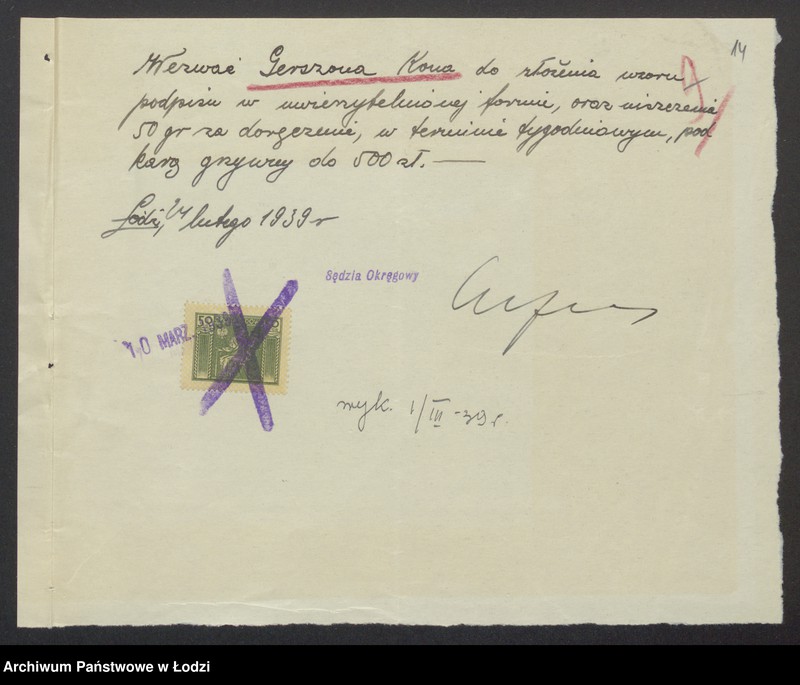 14
Wezwać Gerszona Kona do złożenia wzoru
podpisu w uwierzytelnionej formie, oraz uiszczenia
50 gr za doręczenie, w terminie tygodniowym, pod
karą grzywny do 500 zł. —
Łódź, 24 lutego 1939 r
Sędzia Okręgowy
10 MARZ. 1939
50
wyk. 1/III -39 r.
Archiwum Państwowe w Łodzi